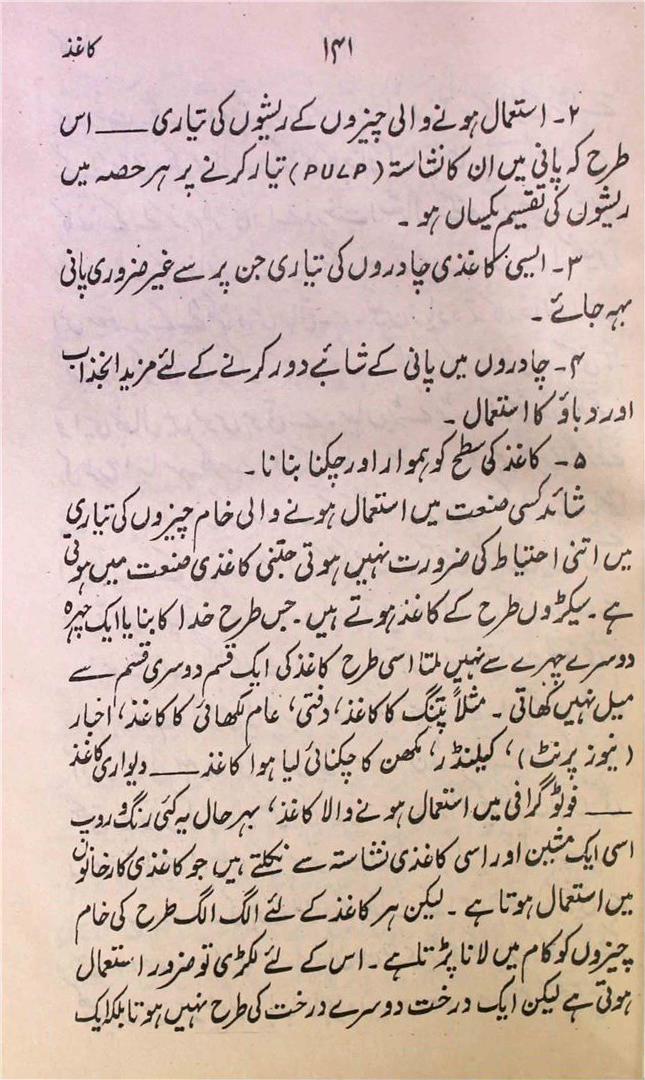 کاغذ
۱۴۱
۲۔ استعمال ہونے والی چیزوں کے ریشوں کی تیاری ــــــ اس
طرح کہ پانی میں ان کا نشاستہ (PULP) تیار کرنے پر ہر حصہ میں
ریشوں کی تقسیم یکساں ہو۔
۳۔ ایسی کاغذی چادروں کی تیاری جن پر سے غیر ضروری پانی
بہہ جائے۔
۴۔ چادروں میں پانی کے شائبے دور کرنے کے لئے مزید انجذاب
اور دباؤ کا استعمال۔
۵۔ کاغذ کی سطح کو ہموار اور چکنا بنانا۔
شائد کسی صنعت میں استعمال ہونے والی خام چیزوں کی تیاری
میں اتنی احتیاط کی ضرورت نہیں ہوتی جتنی کاغذی صنعت میں ہوتی
ہے۔ سیکڑوں طرح کے کاغذ ہوتے ہیں۔ جس طرح خدا کا بنایا ایک چہرہ
دوسرے چہرے سے نہیں ملتا اسی طرح کاغذ کی ایک قسم دوسری قسم سے
میل نہیں کھاتی۔ مثلاً پتنگ کا کاغذ، دفتی، عام لکھائی کا کاغذ، اخبار
(نیوز پرنٹ)، کیلنڈر، مکھن کا چکنائی لیا ہوا کاغذ ــــــ دیواری کاغذ
ــــــ فوٹو گرافی میں استعمال ہونے والا کاغذ، بہرحال یہ کئی رنگ و روپ
اسی ایک مشین اور اسی کاغذی نشاستہ سے نکلتے ہیں جو کاغذی کارخانوں
میں استعمال ہوتا ہے۔ لیکن ہر کاغذ کے لئے الگ الگ طرح کی خام
چیزوں کو کام میں لانا پڑتا ہے۔ اس کے لئے لکڑی تو ضرور استعمال
ہوتی ہے لیکن ایک درخت دوسرے درخت کی طرح نہیں ہوتا بلکہ ایک